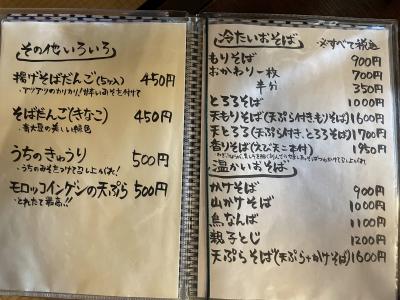 その他いろいろ
揚げそばだんご(5ヶ入) 450円
・アツアツのカリカリ!甘いみそを付けて
そばだんご(きなこ) 450円
・青大豆の美しい緑色
うちのきゅうり 500円
・うちのみそをつけて召し上がれ!
モロッコインゲンの天ぷら 500円
・とれたて最高!!
冷たいおそば ※すべて税込
もりそば 900円
おかわり一枚 700円
半分 350円
とろろそば 1000円
天もりそば(天ぷら付きもりそば) 1600円
天とろろ(天ぷら付き、とろろそば) 1700円
香りそば(えび天二本付) 1950円
温かいおそば
かけそば 900円
山かけそば 1000円
鳥なんば 1100円
親子とじ 1200円
天ぷらそば(天ぷら+かけそば) 1600円